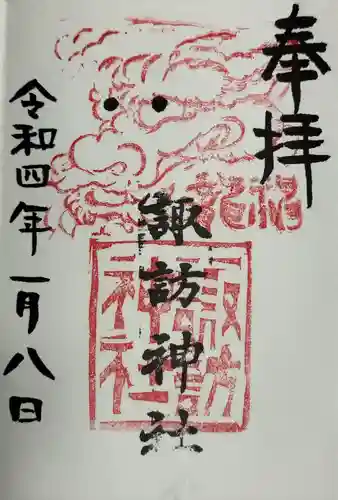 奉拝
諏訪神社
令和四年一月八日
諏訪神社